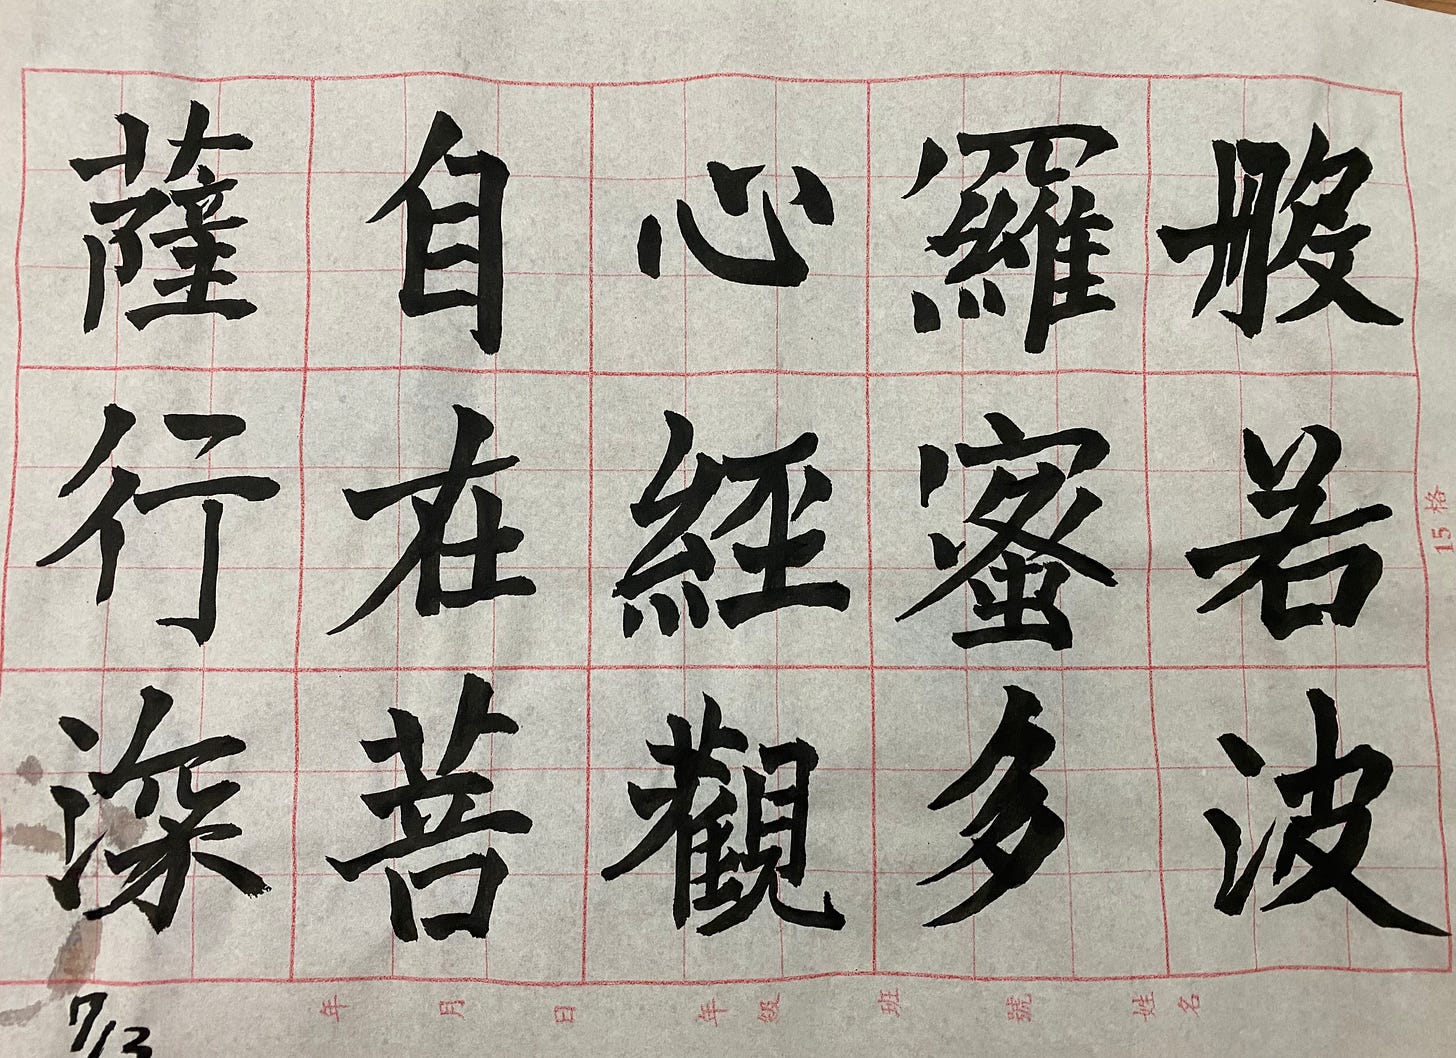 般若波
羅蜜多
心經觀
自在菩
薩行深
15格
年 月 日 年級 班 號 姓名
7/13